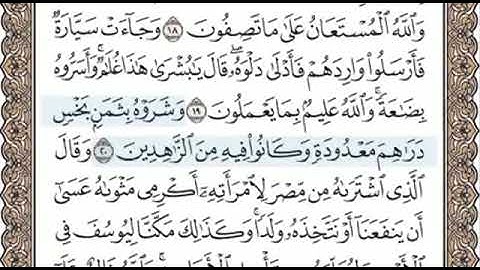 وَٱللَّهُ ٱلْمُسْتَعَانُ عَلَىٰ مَا تَصِفُونَ ١٨ وَجَآءَتْ سَيَّارَةٌ
فَأَرْسَلُوا۟ وَارِدَهُمْ فَأَدْلَىٰ دَلْوَهُۥ ۖ قَالَ يَـٰبُشْرَىٰ هَـٰذَا غُلَـٰمٌ ۚ وَأَسَرُّوهُ
بِضَـٰعَةً ۚ وَٱللَّهُ عَلِيمٌۢ بِمَا يَعْمَلُونَ ١٩ وَشَرَوْهُ بِثَمَنٍۭ بَخْسٍ
دَرَٰهِمَ مَعْدُودَةٍ وَكَانُوا۟ فِيهِ مِنَ ٱلزَّٰهِدِينَ ٢٠ وَقَالَ
ٱلَّذِى ٱشْتَرَىٰهُ مِن مِّصْرَ لِٱمْرَأَتِهِۦٓ أَكْرِمِى مَثْوَىٰهُ عَسَىٰٓ
أَن يَنفَعَنَآ أَوْ نَتَّخِذَهُۥ وَلَدًا ۚ وَكَذَٰلِكَ مَكَّنَّا لِيُوسُفَ فِى